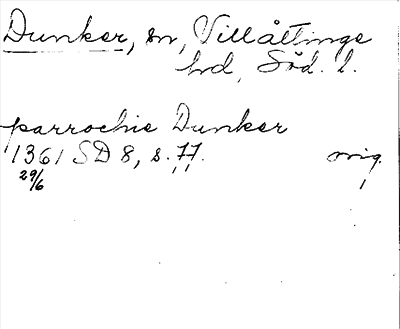 Dunker, sn, Villåttinge
hd, Söd. l.
parrochie Dunker
1361 SD 8, s. 77. orig.
29/6